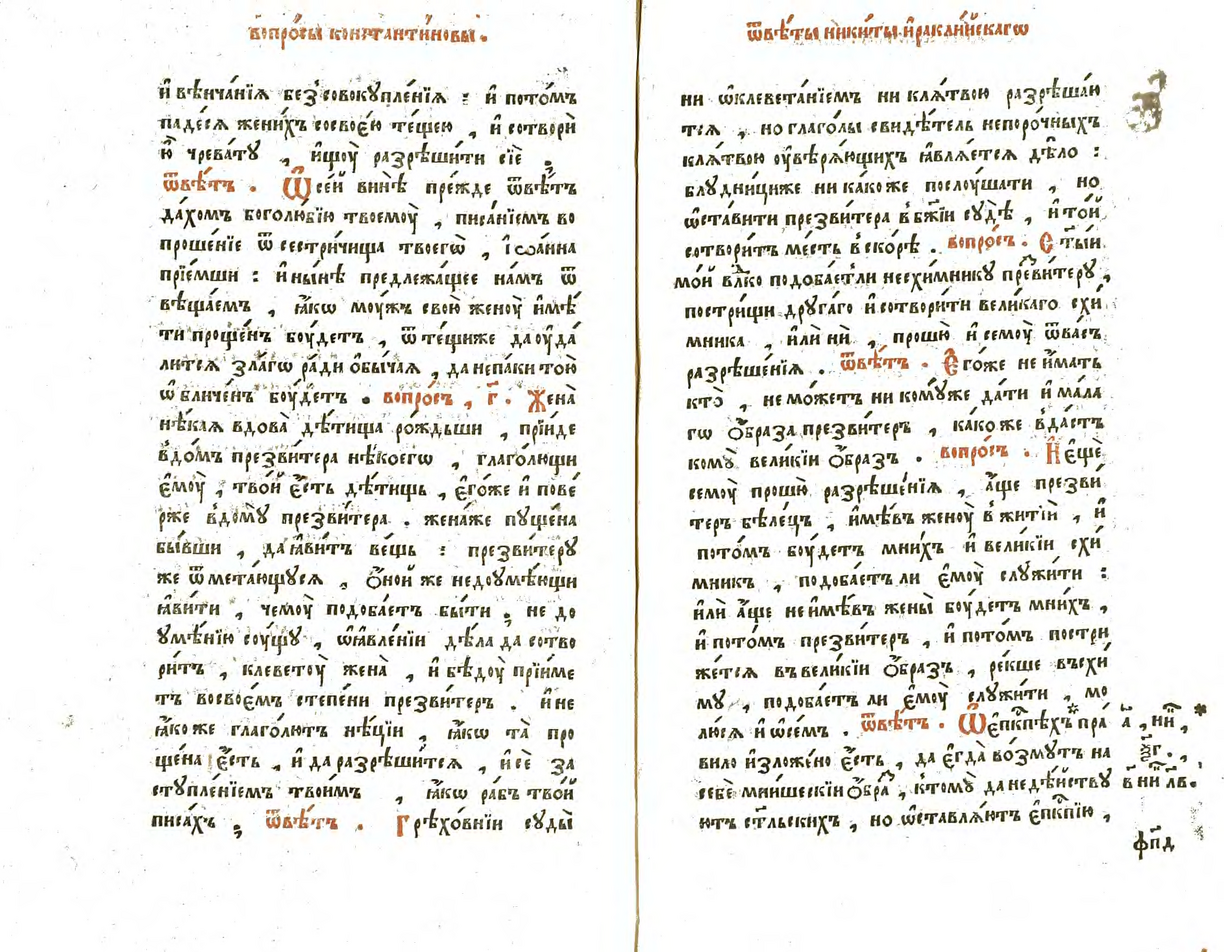 вопро́сы константи́новы.
и҆ вѣнча́нїѧ без̾совокупле́нїѧ : и҆ пото́мъ
паде́сѧ жени́хъ сосвое́ю те́щею , и҆ сотворѝ
ю̀ чрева́ту , и҆щоу̀ разрѣши́ти сїѐ .
ѿвѣ́тъ . Ѿ се́й винѣ̀ пре́жде ѿвѣ́тъ
да́хомъ боголю́бїю твоемоу̀ , писа́нїемъ во
проше́нїе ѿ сестри́чища твоегѡ̀ , і҆ѡа́нна
прїе́мши : и҆ ны́нѣ предлежа́щее на́мъ ѿ
вѣща́емъ , ꙗ҆́кѡ моу́жъ свою̀ женоу̀ и҆мѣ́
ти проще́нъ боу́детъ , ѿ те́щиже да оу҆да
ли́тсѧ зла́гѡ ра́ди ѻ҆бы́чаѧ , да непа́ки то́ю
ѡ҆бличе́нъ боу́детъ . вопро́съ , г҃ . Жена̀
нѣ́каѧ вдова̀ дѣ́тища рожда́ши , прїи́де
вдо́мъ презви́тера нѣ́коегѡ , глаго́лющи
є҆моу̀ , тво́й є҆́сть дѣ́тищь , є҆го́же и҆ пове́
рже вдомꙋ̀ презви́тера . жена́же пꙋще́на
бы́вши , да ꙗ҆ви́тъ ве́щь : презви́терꙋ
же ѿмета́ющꙋсѧ , ѻ҆́ной же недоумѣ́ющи
ꙗ҆ви́ти , чемоу̀ подоба́етъ бы́ти ; не до
ꙋмѣ́нїю соу́щꙋ , ѡ҆ ꙗ҆вле́нїи дѣ́ла да сотво
ри́тъ , клеветоу̀ жена̀ , и҆ бѣдоу̀ прїи́ме
тъ восвое́мъ степе́ни презви́теръ . и҆ не
ꙗ҆́коже глаго́лютъ нѣ́цїи , ꙗ҆́кѡ та̀ про
ще́на є҆́сть , и҆ да разрѣши́тсѧ , и҆ сѐ за
стꙋпле́нїемъ твои́мъ , ꙗ҆́кѡ ра́бъ тво́й
писа́хъ ; ѿвѣ́тъ . Грѣхо́внїи сꙋды̀
ѿвѣ́ты ники́ты и҆ракли́йскагѡ
ни ѡ҆клевета́нїемъ ни клѧ́твою разрѣша́ю
тсѧ , но глаго́лы свидѣ́тель непоро́чныхъ
клѧ́твою оу҆вѣрѧ́ющихъ ꙗ҆влѧ́етсѧ дѣ́ло :
блꙋдни́циже ника́коже послоу́шати , но
ѡ҆ста́вити презви́тера в бж҃їи сꙋдѣ̀ , и҆ то́й
сотвори́тъ ме́сть вско́рѣ . вопро́съ . Ст҃ы́й
мо́й влⷣко подоба́етъли несхи́мникꙋ пре́витерꙋ ,
постри́щи дрꙋга́го и҆ сотвори́ти вели́каго схи́
мника , и҆лѝ нѝ , прошю̀ и҆ семоу̀ ѿ ва́съ
разрѣше́нїѧ . ѿвѣ́тъ . Є҆го́же не и҆́мать
кто̀ , не мо́жетъ ни комꙋ́же да́ти и҆ ма́ла
гѡ ѻ҆́браза презви́теръ , ка́коже вда́стъ
комꙋ̀ вели́кїи ѻ҆́бразъ . вопро́съ . И҆ є҆щѐ
семоу̀ прошю̀ разрѣше́нїѧ , а҆́ще презви́
теръ бѣле́цъ , и҆мѣ́въ женоу̀ в житїѝ , и҆
пото́мъ боу́детъ мни́хъ и҆ вели́кїи схи́
мникъ , подоба́етъ ли є҆моу̀ слꙋжи́ти :
и҆лѝ а҆́ще не и҆мѣ́въ жены̀ боу́детъ мни́хъ ,
и҆ пото́мъ презви́теръ , и҆ пото́мъ постри
же́тсѧ въ вели́кїи ѻ҆́бразъ , ре́кше въсхи́
мꙋ , подоба́етъ ли є҆моу̀ слꙋжи́ти , мо
лю́сѧ и҆ ѡ҆ се́мъ . ѿвѣ́тъ . Ѡ҆ є҆пⷭ҇кпѣхъ* пра́
вило и҆зложе́но є҆́сть , да є҆гда̀ во́змꙋтъ на
себѐ мни́шескїи ѻ҆́браⷥ , ктомꙋ̀ да недѣ́йствꙋ
ютъ ст҃льскихъ , но ѡ҆ставлѧ́ютъ є҆пⷭ҇кпїю ,
фп҃д